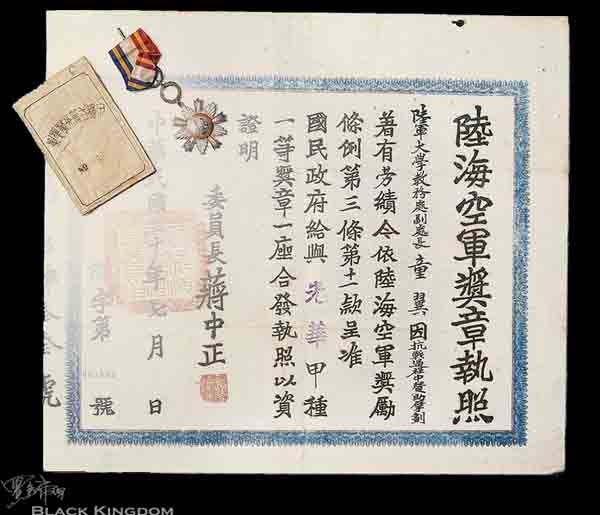 陸海空軍獎章執照
陸軍大學教務處副處長童翼因抗戰過程中贊助擘劃
著有勞績令依陸海空軍獎勵
條例第三條第十一款呈准
國民政府給與光華甲種
一等獎章一座合發執照以資
證明
委員長蔣中正
中華民國三十年七月 日
字第 號
BLACK KINGDOM